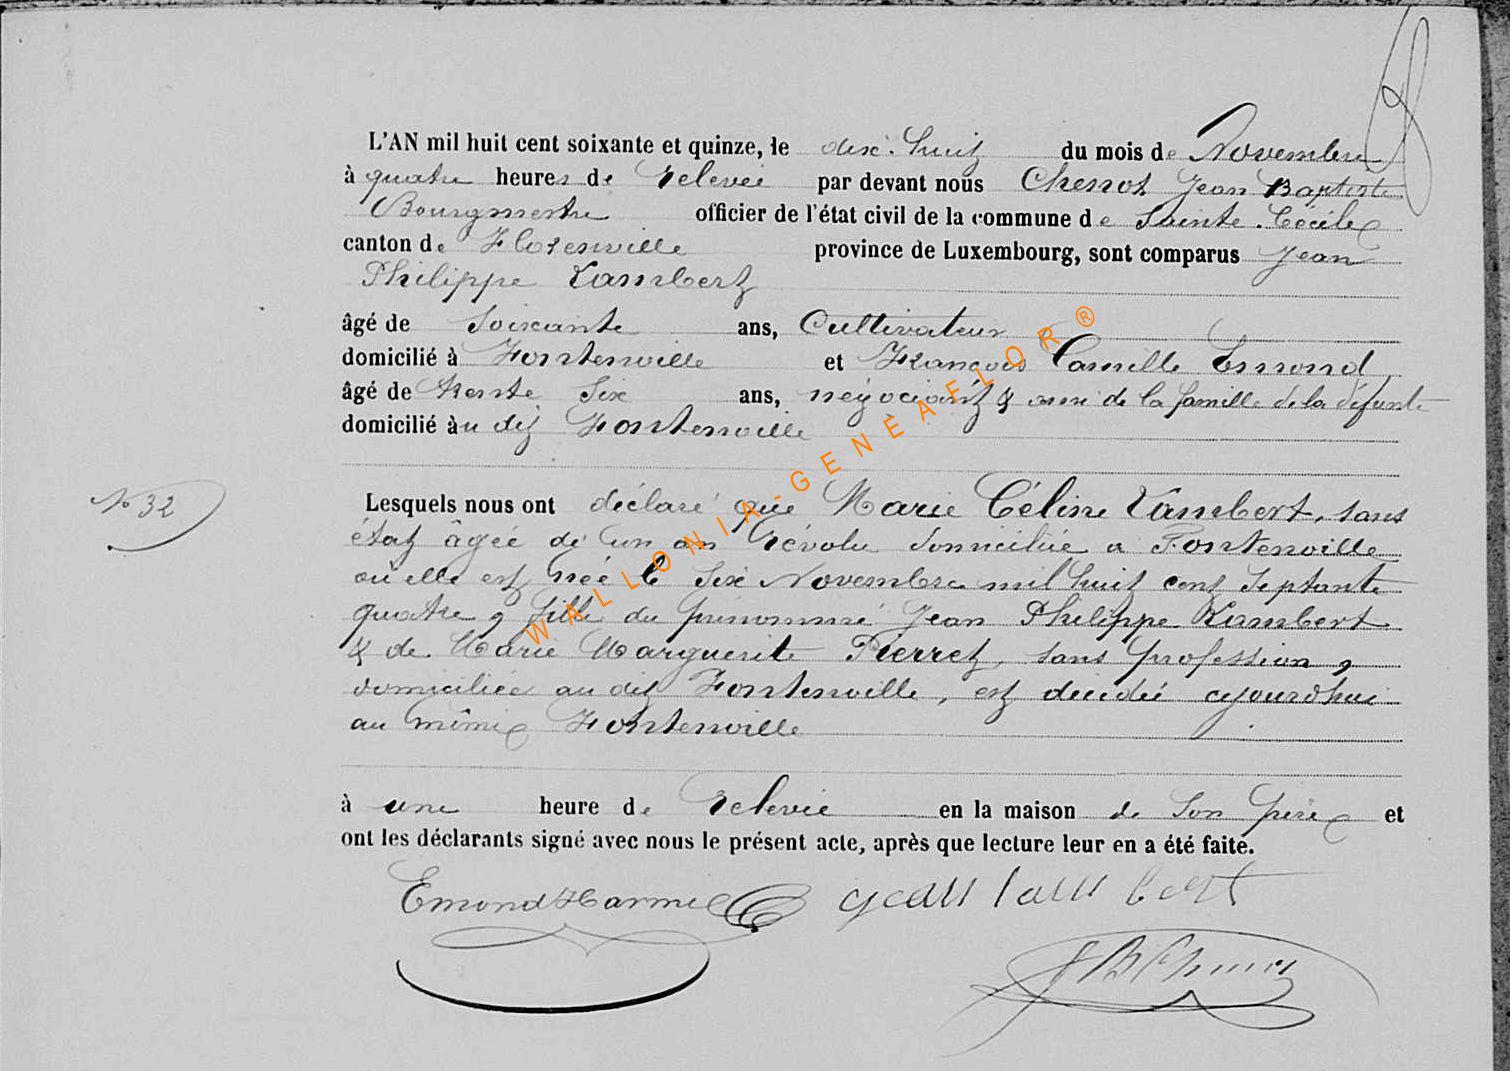 L'AN mil huit cent soixante et quinze, le dix-huit du mois de Novembre
à quatre heures de relevée par devant nous Chenot Jean Baptiste
Bourgmestre officier de l'état civil de la commune de Sainte-Cécile
canton de Florenville province de Luxembourg, sont comparus Jean
Philippe Lambert
âgé de soixante ans, Cultivateur
domicilié à Fontenoille et François Camille Emond
âgé de trente six ans, négociant & ami de la famille de la défunte
domicilié au dit Fontenoille
N° 32
Lesquels nous ont déclaré que Marie Céline Lambert, sans
état âgée de un an révolu domiciliée a Fontenoille
où elle est née le six Novembre mil huit cent septante
quatre, fille du prénommé Jean Philippe Lambert
& de Marie Marguerite Pierret, sans profession,
domiciliée au dit Fontenoille, est décédée cejourd'hui
au même Fontenoille
à une heure de relevée en la maison de son père et
ont les déclarants signé avec nous le présent acte, après que lecture leur en a été faite.
Emond Harmel Jean Lambert
JBChenot
WALLONIA-GENEAFLOR ®